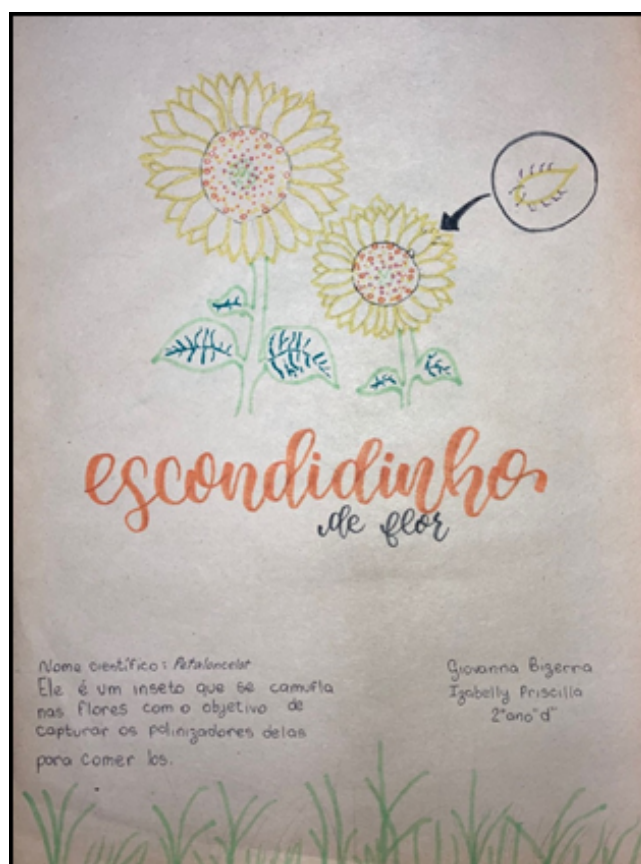 escondidinho
de flor
Nome científico: Petaloncelot
Ele é um inseto que se camufla
nas flores com o objetivo de
capturar os polinizadores delas
para comer los.
Giovanna Bizerra
Izabelly Priscilla
2°ano"d"